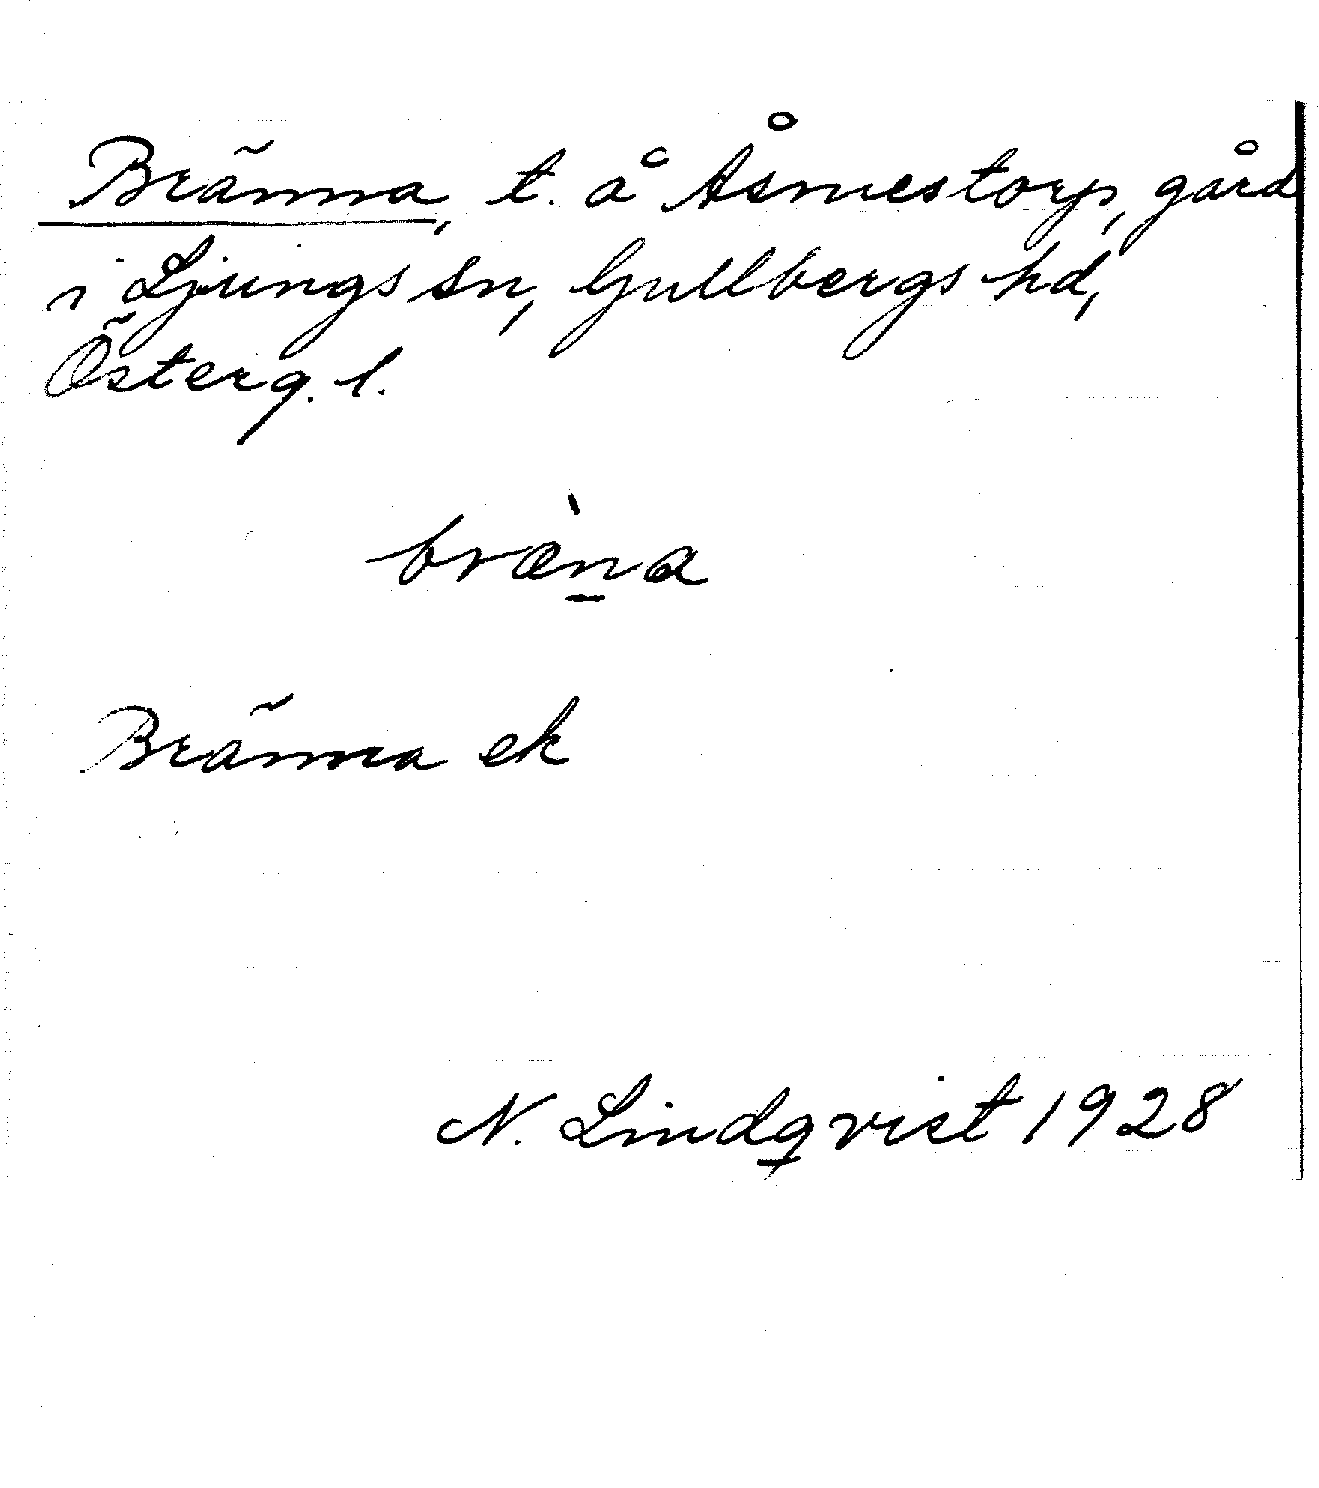 Bränna, t. å Åsmestorp, gård
i Ljungs sn, Gullbergs hd,
Österg. l.
bræ̀n̠a
Bränna ek
N. Lindqvist 1928